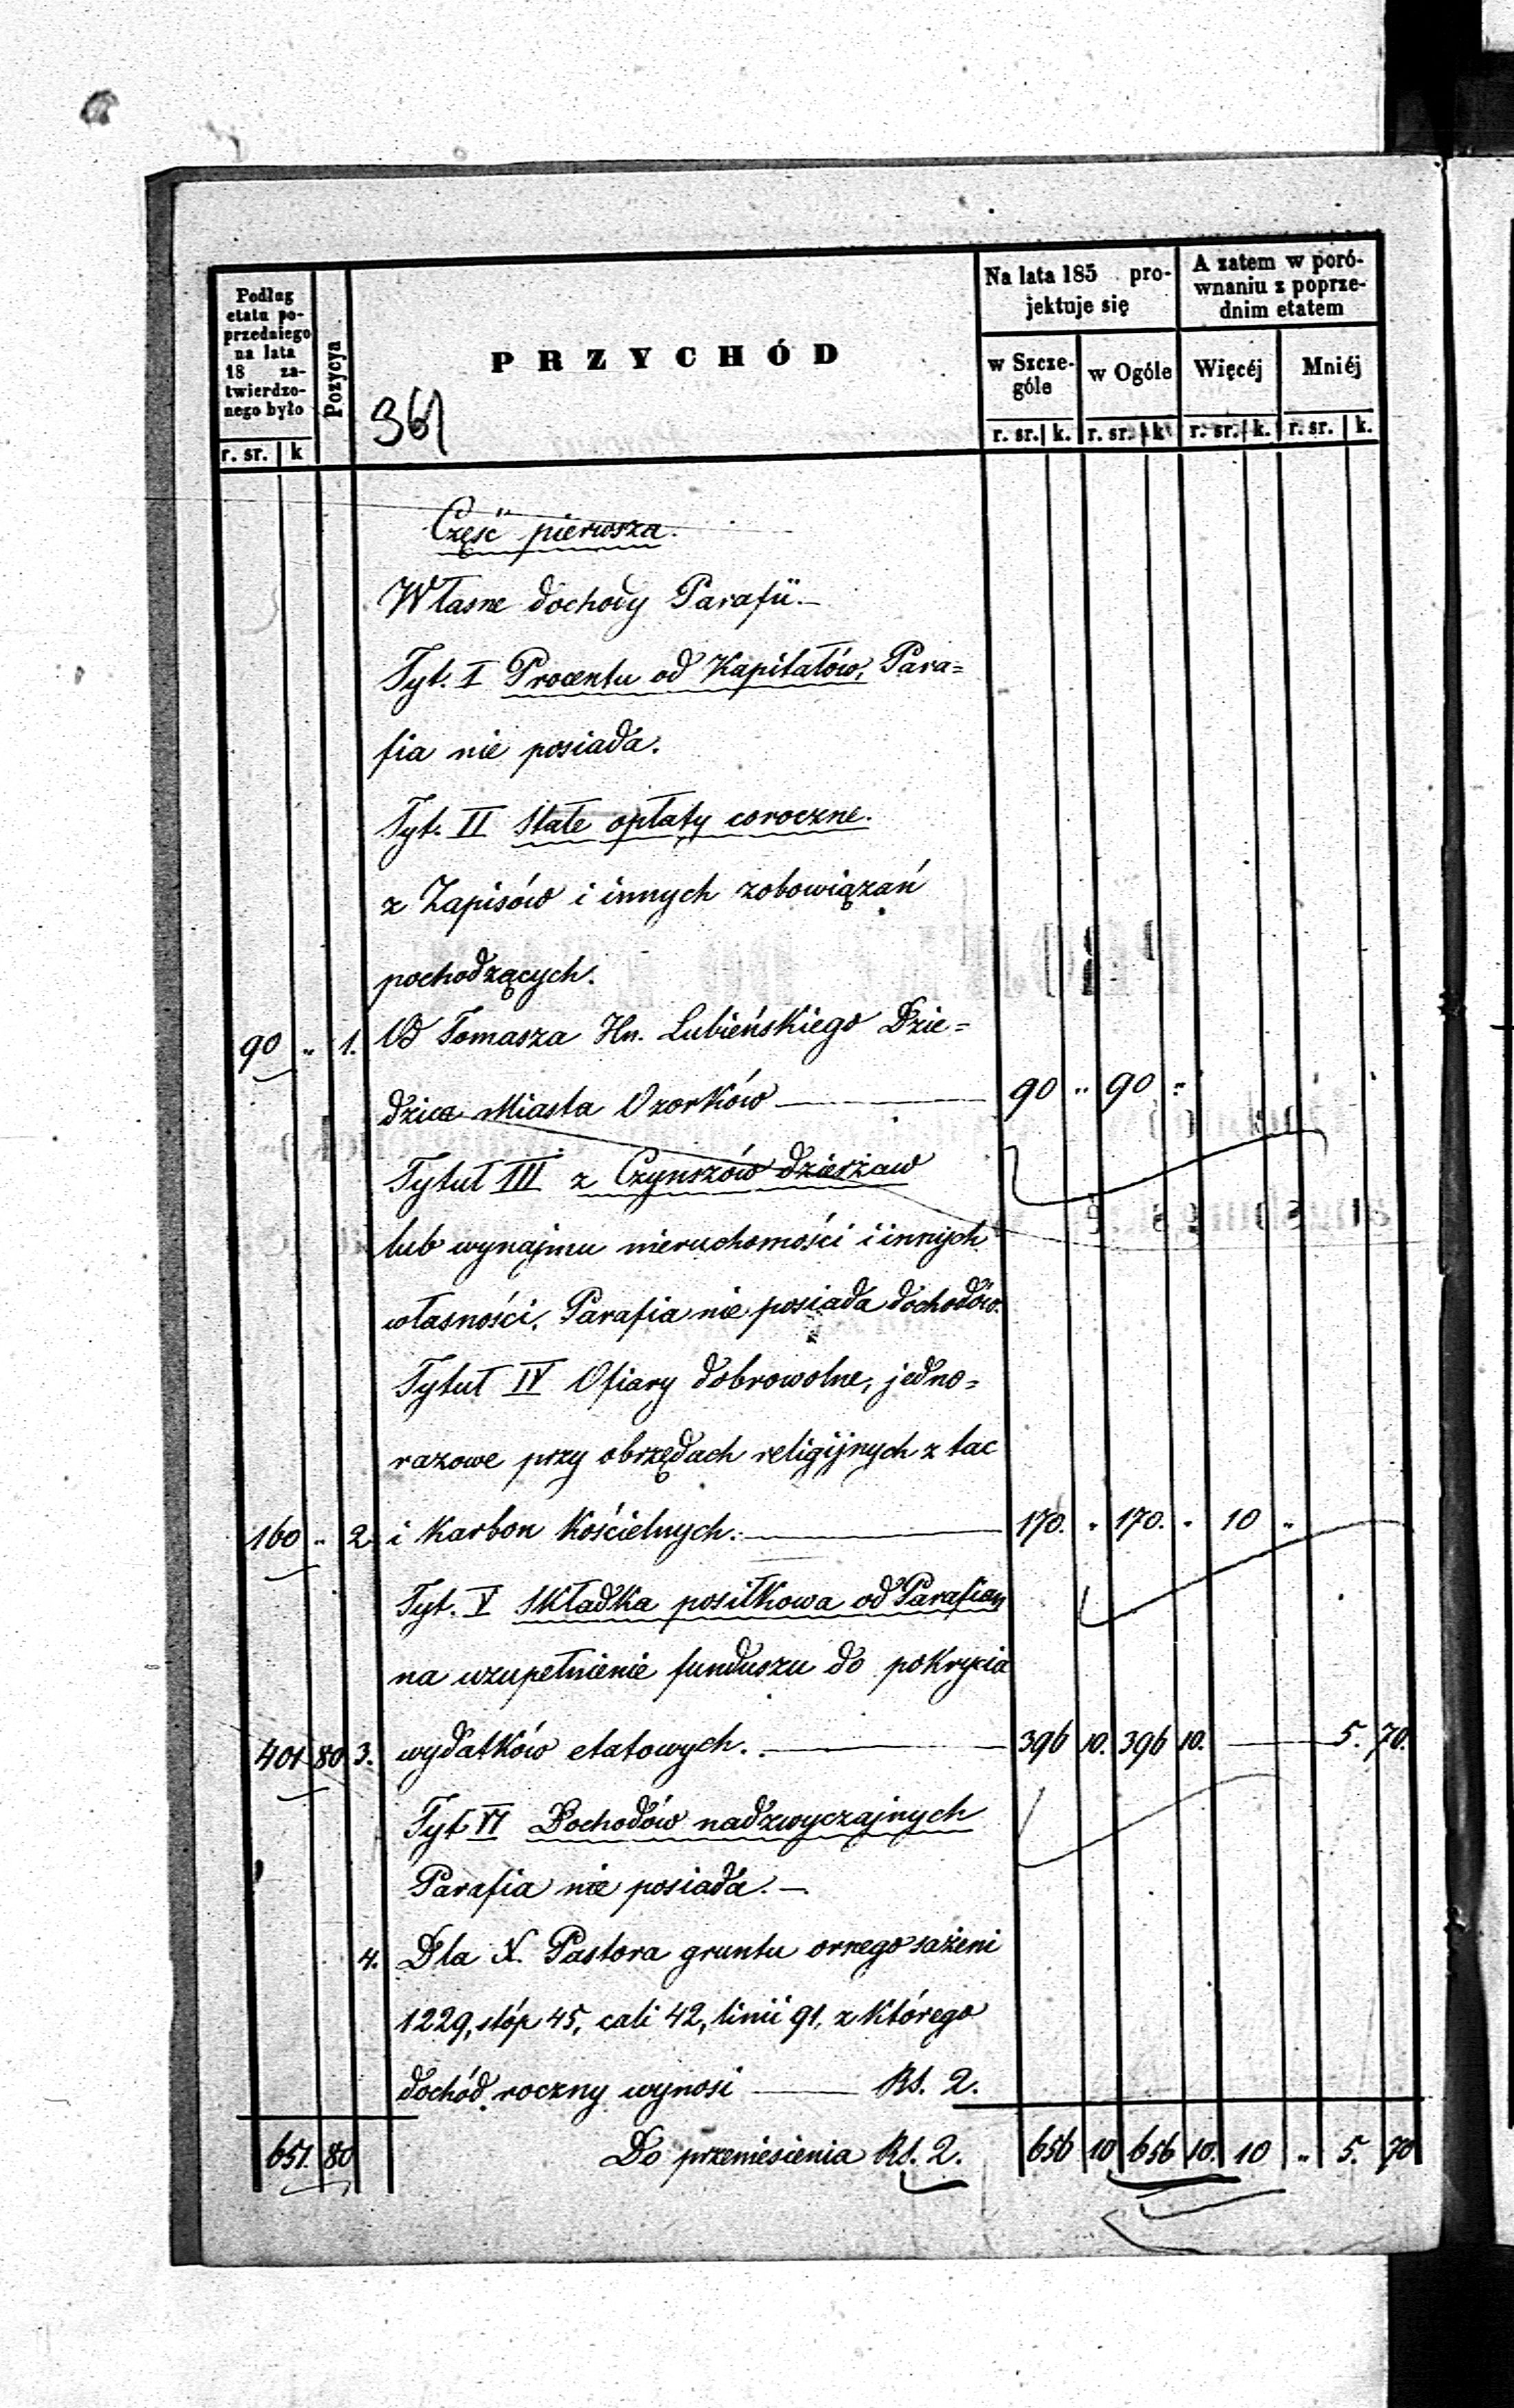 Podług etatu poprzedniego na lata 18 zatwierdzonego było
Pozycya
PRZYCHÓD
Na lata 185 projektuje się
A zatem w porównaniu z poprzednim etatem
w Szczególe
w Ogóle
Więcéj
Mniéj
r. sr. k r. sr. k. r. sr. k r. sr. k. r. sr. k.
361
Część pierwsza.
Własne dochody Parafii.—
Tyt. I Procentu od Kapitałów, Para=
fia nie posiada.
Tyt. II Stałe opłaty coroczne.
z Zapisów i innych zobowiązań
pochodzących.
90 „ 1. Od Tomasza Hr. Lubieńskiego Dzie=
dzica Miasta Ozorków — 90 „ 90 „
Tytuł III z Czynszów dzierżaw
lub wynajmu nieruchomości i innych
własności, Parafia nie posiada dochodów.
Tytuł IV Ofiary dobrowolne, jedno=
razowe przy obrzędach religijnych z tac
160 „ 2. i Karbon Kościelnych. — 170. „ 170. „ 10 „
Tyt. V Składka posiłkowa od Parafian
na uzupełnienie funduszu do pokrycia
401 80 3. wydatków etatowych. — 396 10. 396 10. — 5. 70.
Tyt VI Dochodów nadzwyczajnych
Parafia nie posiada.—
4. Dla X. Pastora gruntu ornego sażeni
1229, stóp 45, cali 42, linii 91, z którego
dochód roczny wynosi — Rs. 2.
651 80 Do przeniesienia Rs. 2. 656 10 656 10. 10 „ 5. 70